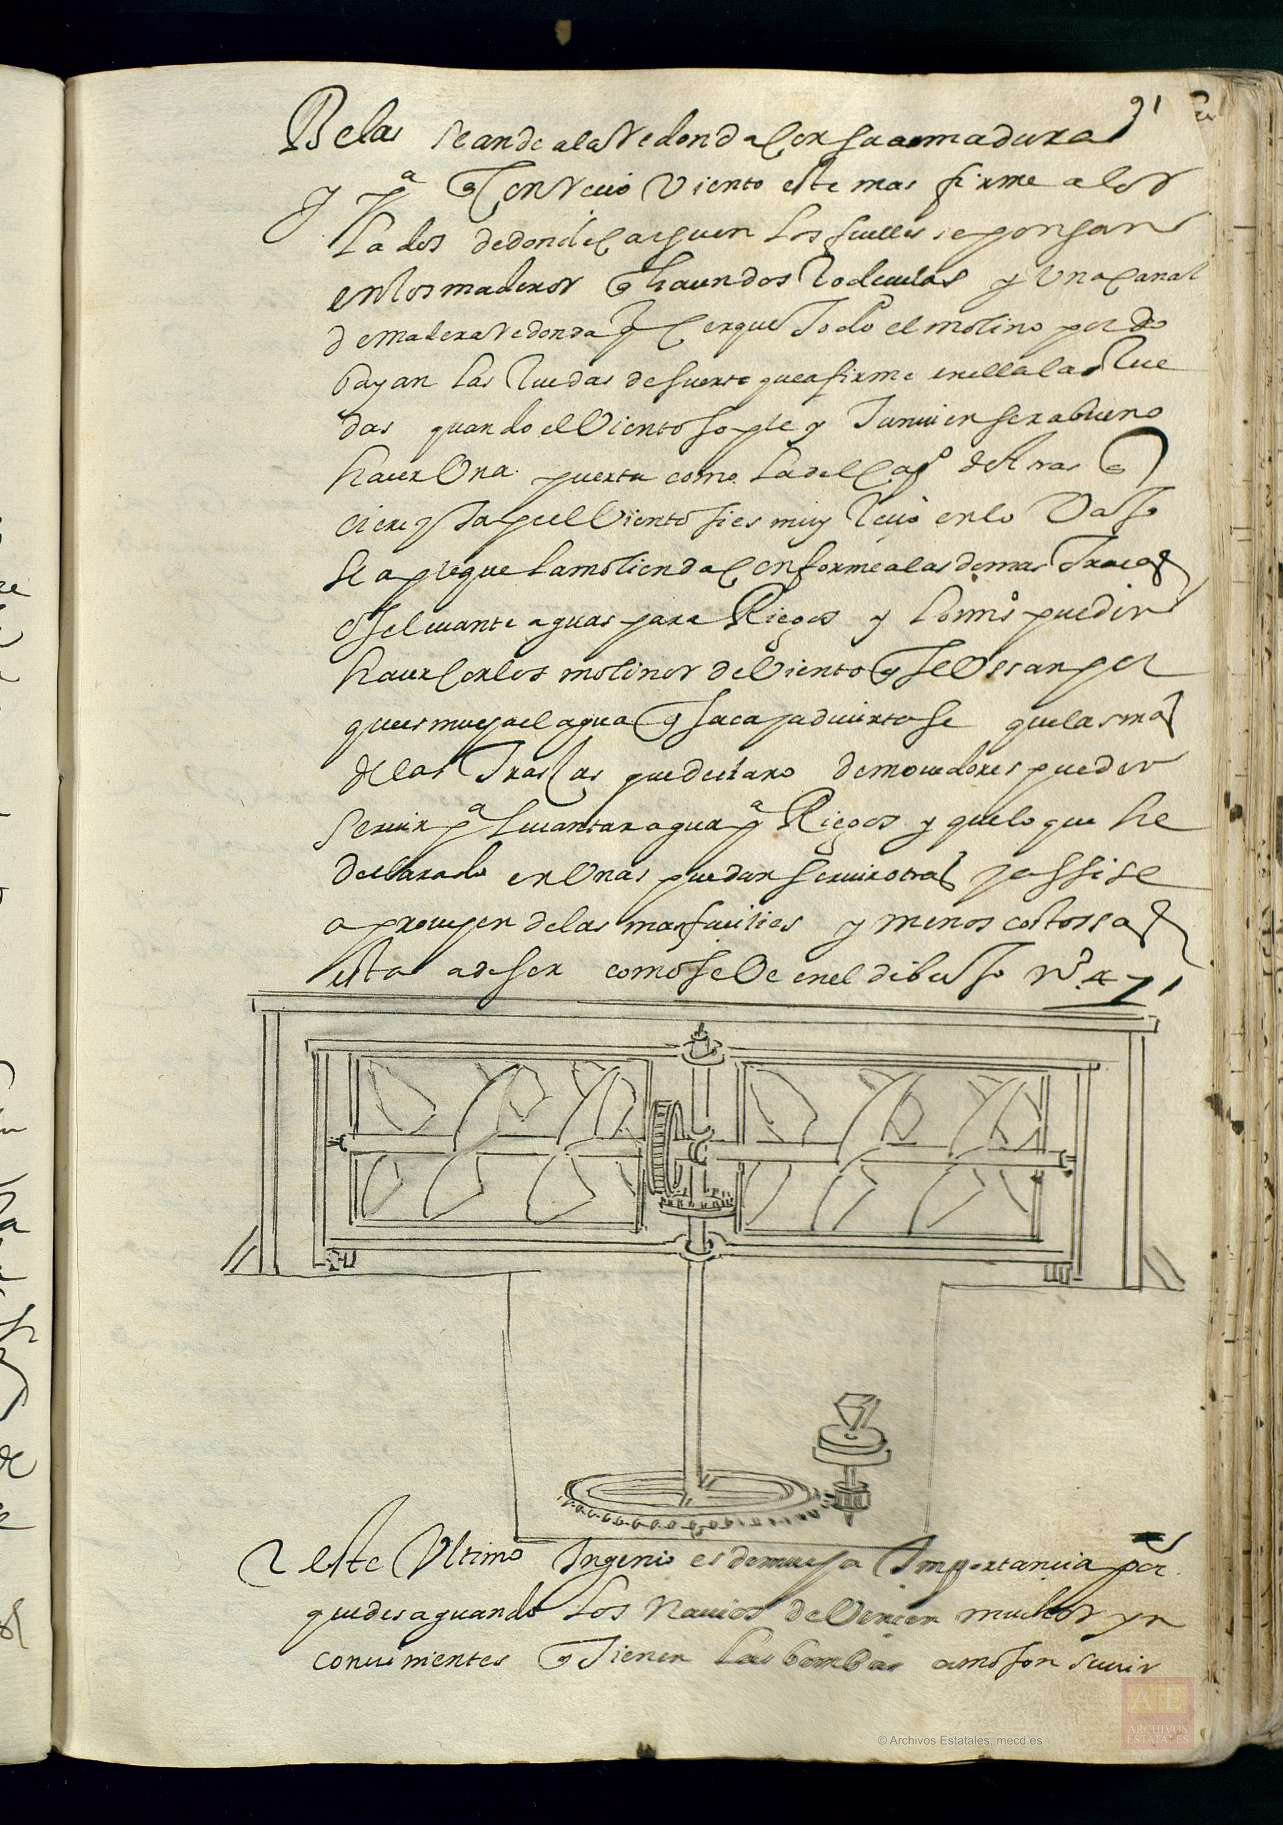 91
Belas se ande a la Redonda con su armadura
y pa q con Recio Viento este mas firme a los
lados de donde carguen los fuelles se pongan
en los maderos q hauen dos Rodeuelas y Una canal
de madera Redonda q cerque todo el molino por do
bayan las Ruedas de suerte que afirme en ella las Rue
das quando el Viento sople y tambien sera bueno
hacer Una puerta como la del de Atras q
cierre y tape el Viento si es muy Recio en lo Vaxo
se aplique la molienda conforme a las demas tracas
o se leuante aguas para Riegos y lo mismo pueden
hacer con los molinos de Viento q se Ussan por
que es mucha el agua q saca y aduiertase que las mas
de las tracas que declaro de mouedores pueden
seruir pa leuantar agua pa Riegos y que lo que he
declarado en Unas puedan seruir otras y assi se
aprouechen de las mas faciles y menos costossas
esta a de ser como se Ve en el dibuxo No 47
2 este Ultimo Ingenio es de mucha Importancia por
que desaguando los Nauios de Vencen muchos yn
conuenientes q tienen las bombas
© Archivos Estatales, mecd.es
ARCHIVOS
ESTATALES